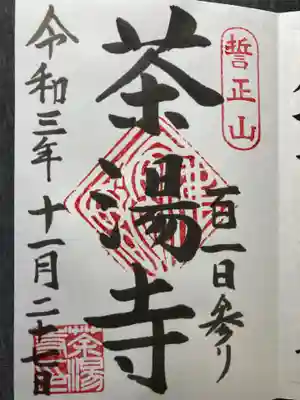 誓正山
百一日参り
茶湯寺
令和三年 十一月二十七日
茶湯